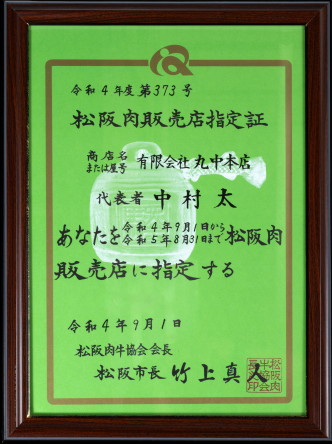 令和4年度第373号
松阪肉販売店指定証
商店名
または屋号 有限会社丸中本店
代表者 中村太
あなたを令和4年9月1日から
令和5年8月31日まで松阪肉
販売店に指定する
令和4年9月1日
松阪肉牛協会会長
松阪市長 竹上真人